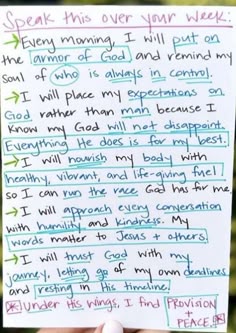 Speak this over your week:
→ Every morning, I will put on
the armor of God and remind my
soul of who is always in control.
→ I will place my expectations on
God rather than man because I
know my God will not disappoint.
Everything He does is for my best.
→ I will nourish my body with
healthy, vibrant, and life-giving fuel
so I can run the race God has for me
→ I will approach every conversation
with humility and kindness. My
words matter to Jesus + others.
→ I will trust God with my
journey, letting go of my own deadlines
and resting in His timeline.
Under His wings, I find PROVISION
+ PEACE.